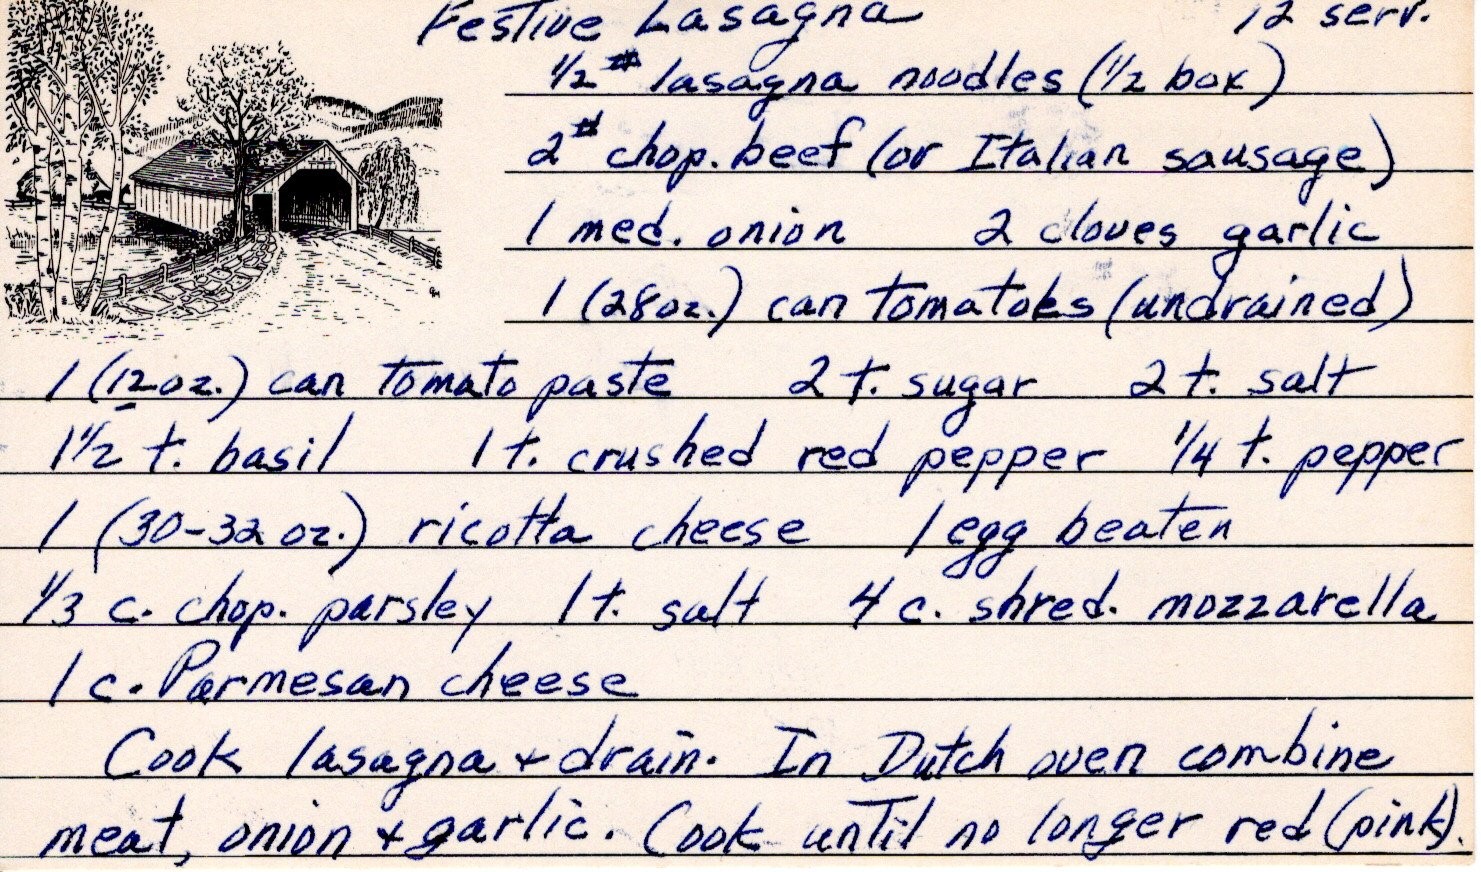 Festive Lasagna 12 serv.
1/2 # lasagna noodles (1/2 box)
2 # chop. beef (or Italian sausage)
1 med. onion 2 cloves garlic
1 (28oz.) can tomatoes (undrained)
1 (12 oz.) can tomato paste 2 t. sugar 2 t. salt
1 1/2 t. basil 1 t. crushed red pepper 1/4 t. pepper
1 (30-32 oz.) ricotta cheese 1 egg beaten
1/3 c. chop. parsley 1 t. salt 4 c. shred. mozzarella
1 c. Parmesan cheese
Cook lasagna + drain. In Dutch oven combine
meat, onion + garlic. Cook until no longer red (pink).